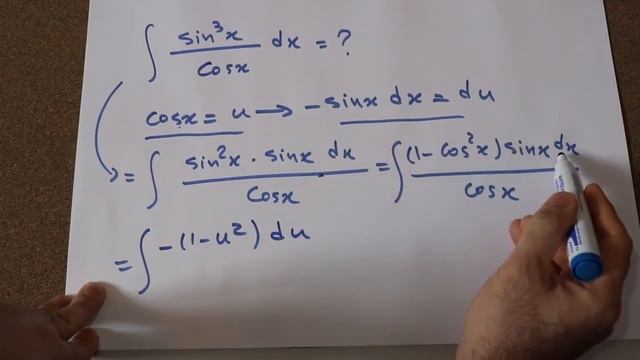 ∫ sin³x / cosx dx = ?
cosx = u → - sinx dx = du
= ∫ sin²x · sinx dx / cosx = ∫ (1 - cos²x) sinx dx / cosx
= ∫ -(1 - u²) du